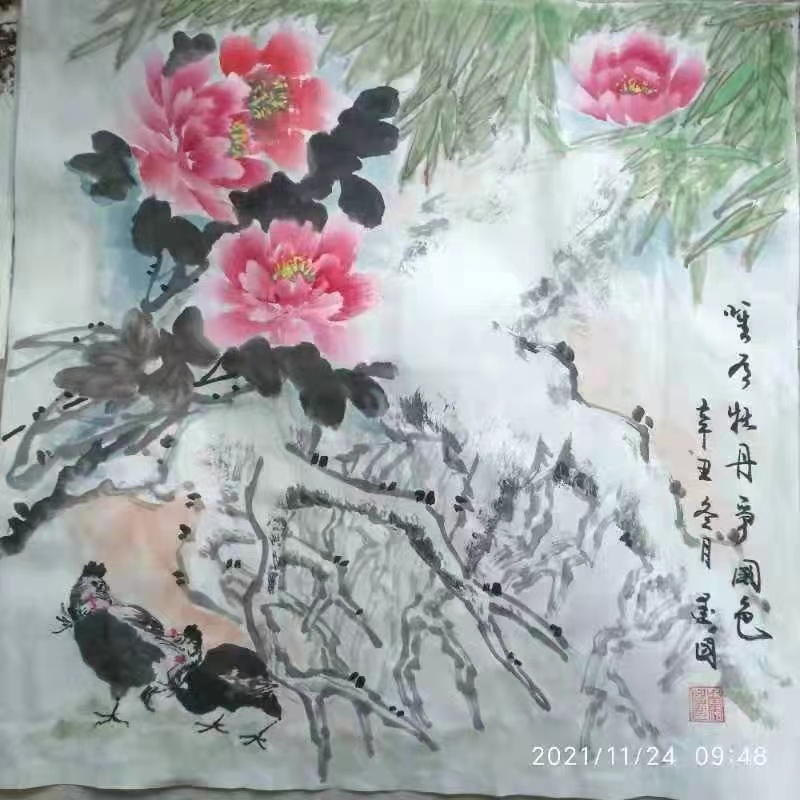 唯有牡丹争國色
辛丑冬月
2021/11/24 09:48